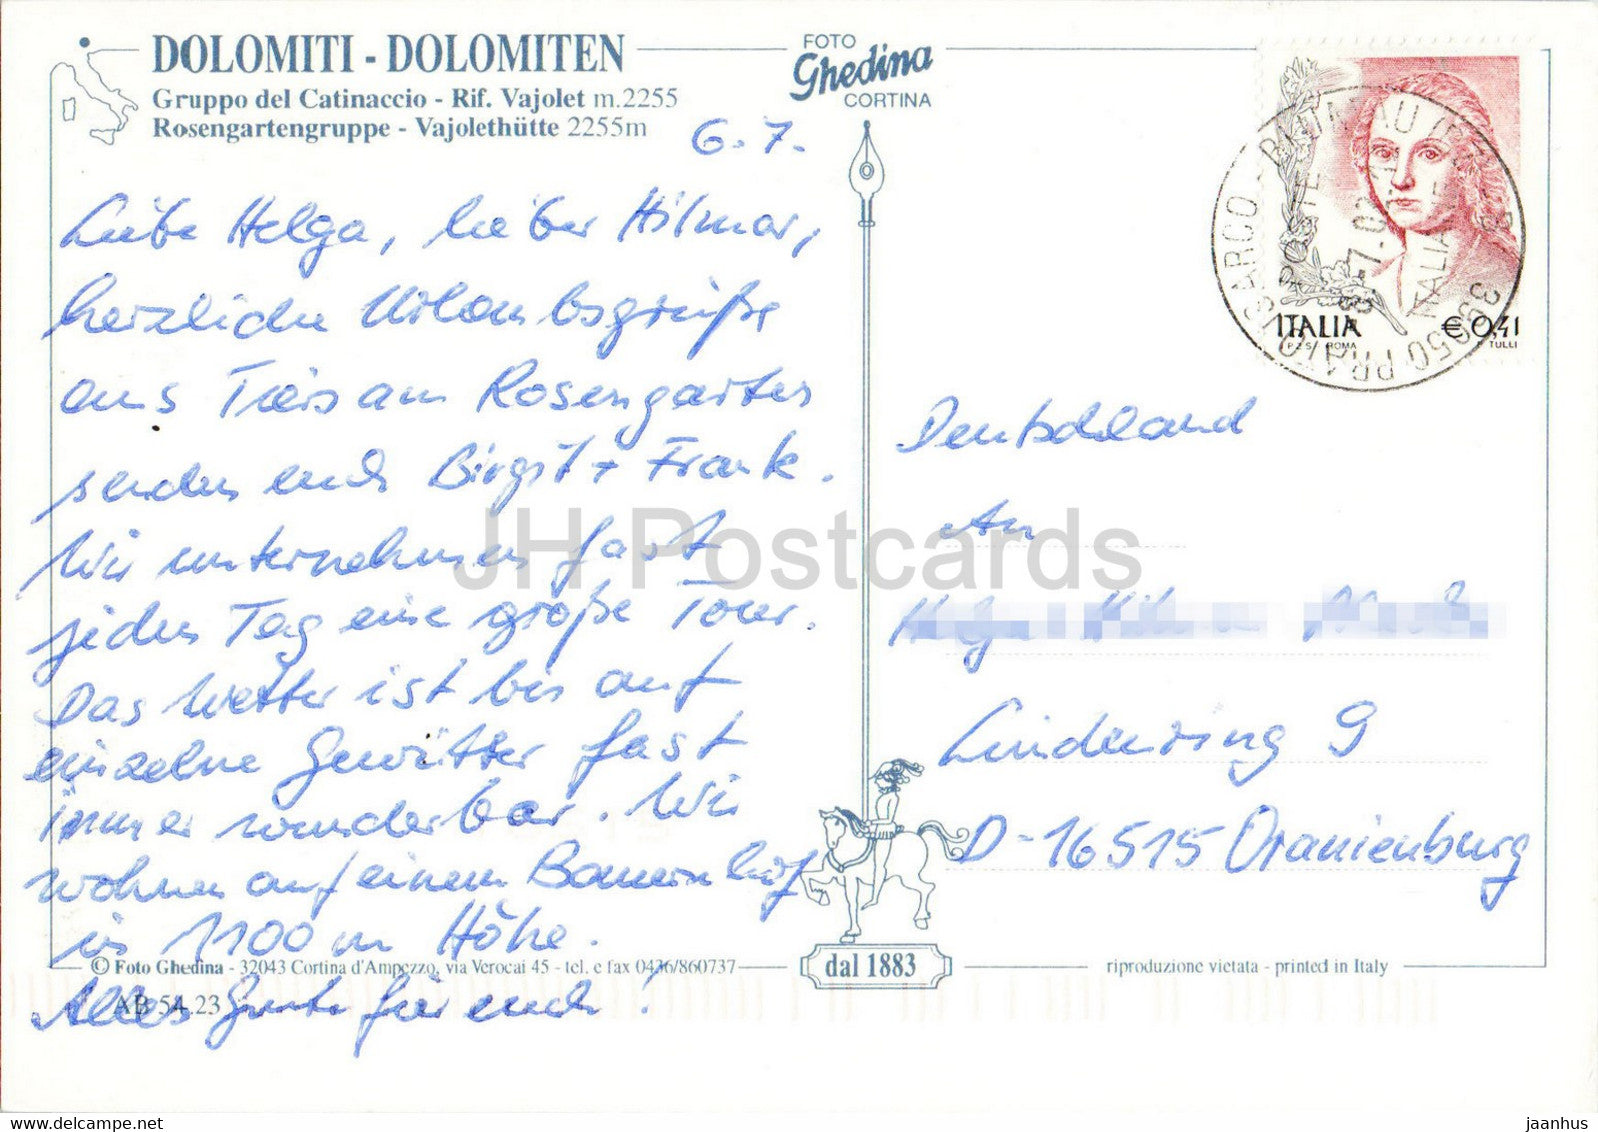 DOLOMITI - DOLOMITEN
Gruppo del Catinaccio - Rif. Vajolet m.2255
Rosengartengruppe - Vajolethütte 2255m
FOTO
Ghedina
CORTINA
6.7.
Liebe Helga, lieber Hilmar,
herzliche Urlaubsgrüße
aus Tiers am Rosengarten
senden euch Birgit + Frank.
Wir unternehmen fast
jeden Tag eine große Tour.
Das Wetter ist bis auf
einzelne Gewitter fast
immer wunderbar. Wir
wohnen auf einem Bauernhof
in 1100 m Höhe.
Alles Gute für euch!
© Foto Ghedina - 32043 Cortina d'Ampezzo, via Verocai 45 - tel. e fax 0436/860737
AB 54.23
dal 1883
riproduzione vietata - printed in Italy
ITALIA
€ 0,41
I.P.Z.S. ROMA
TULLI
39050 PRATO
Deutschland
An
Lindenring 9
D-16515 Oranienburg
JH Postcards
www.delcampe.net
jaanhus